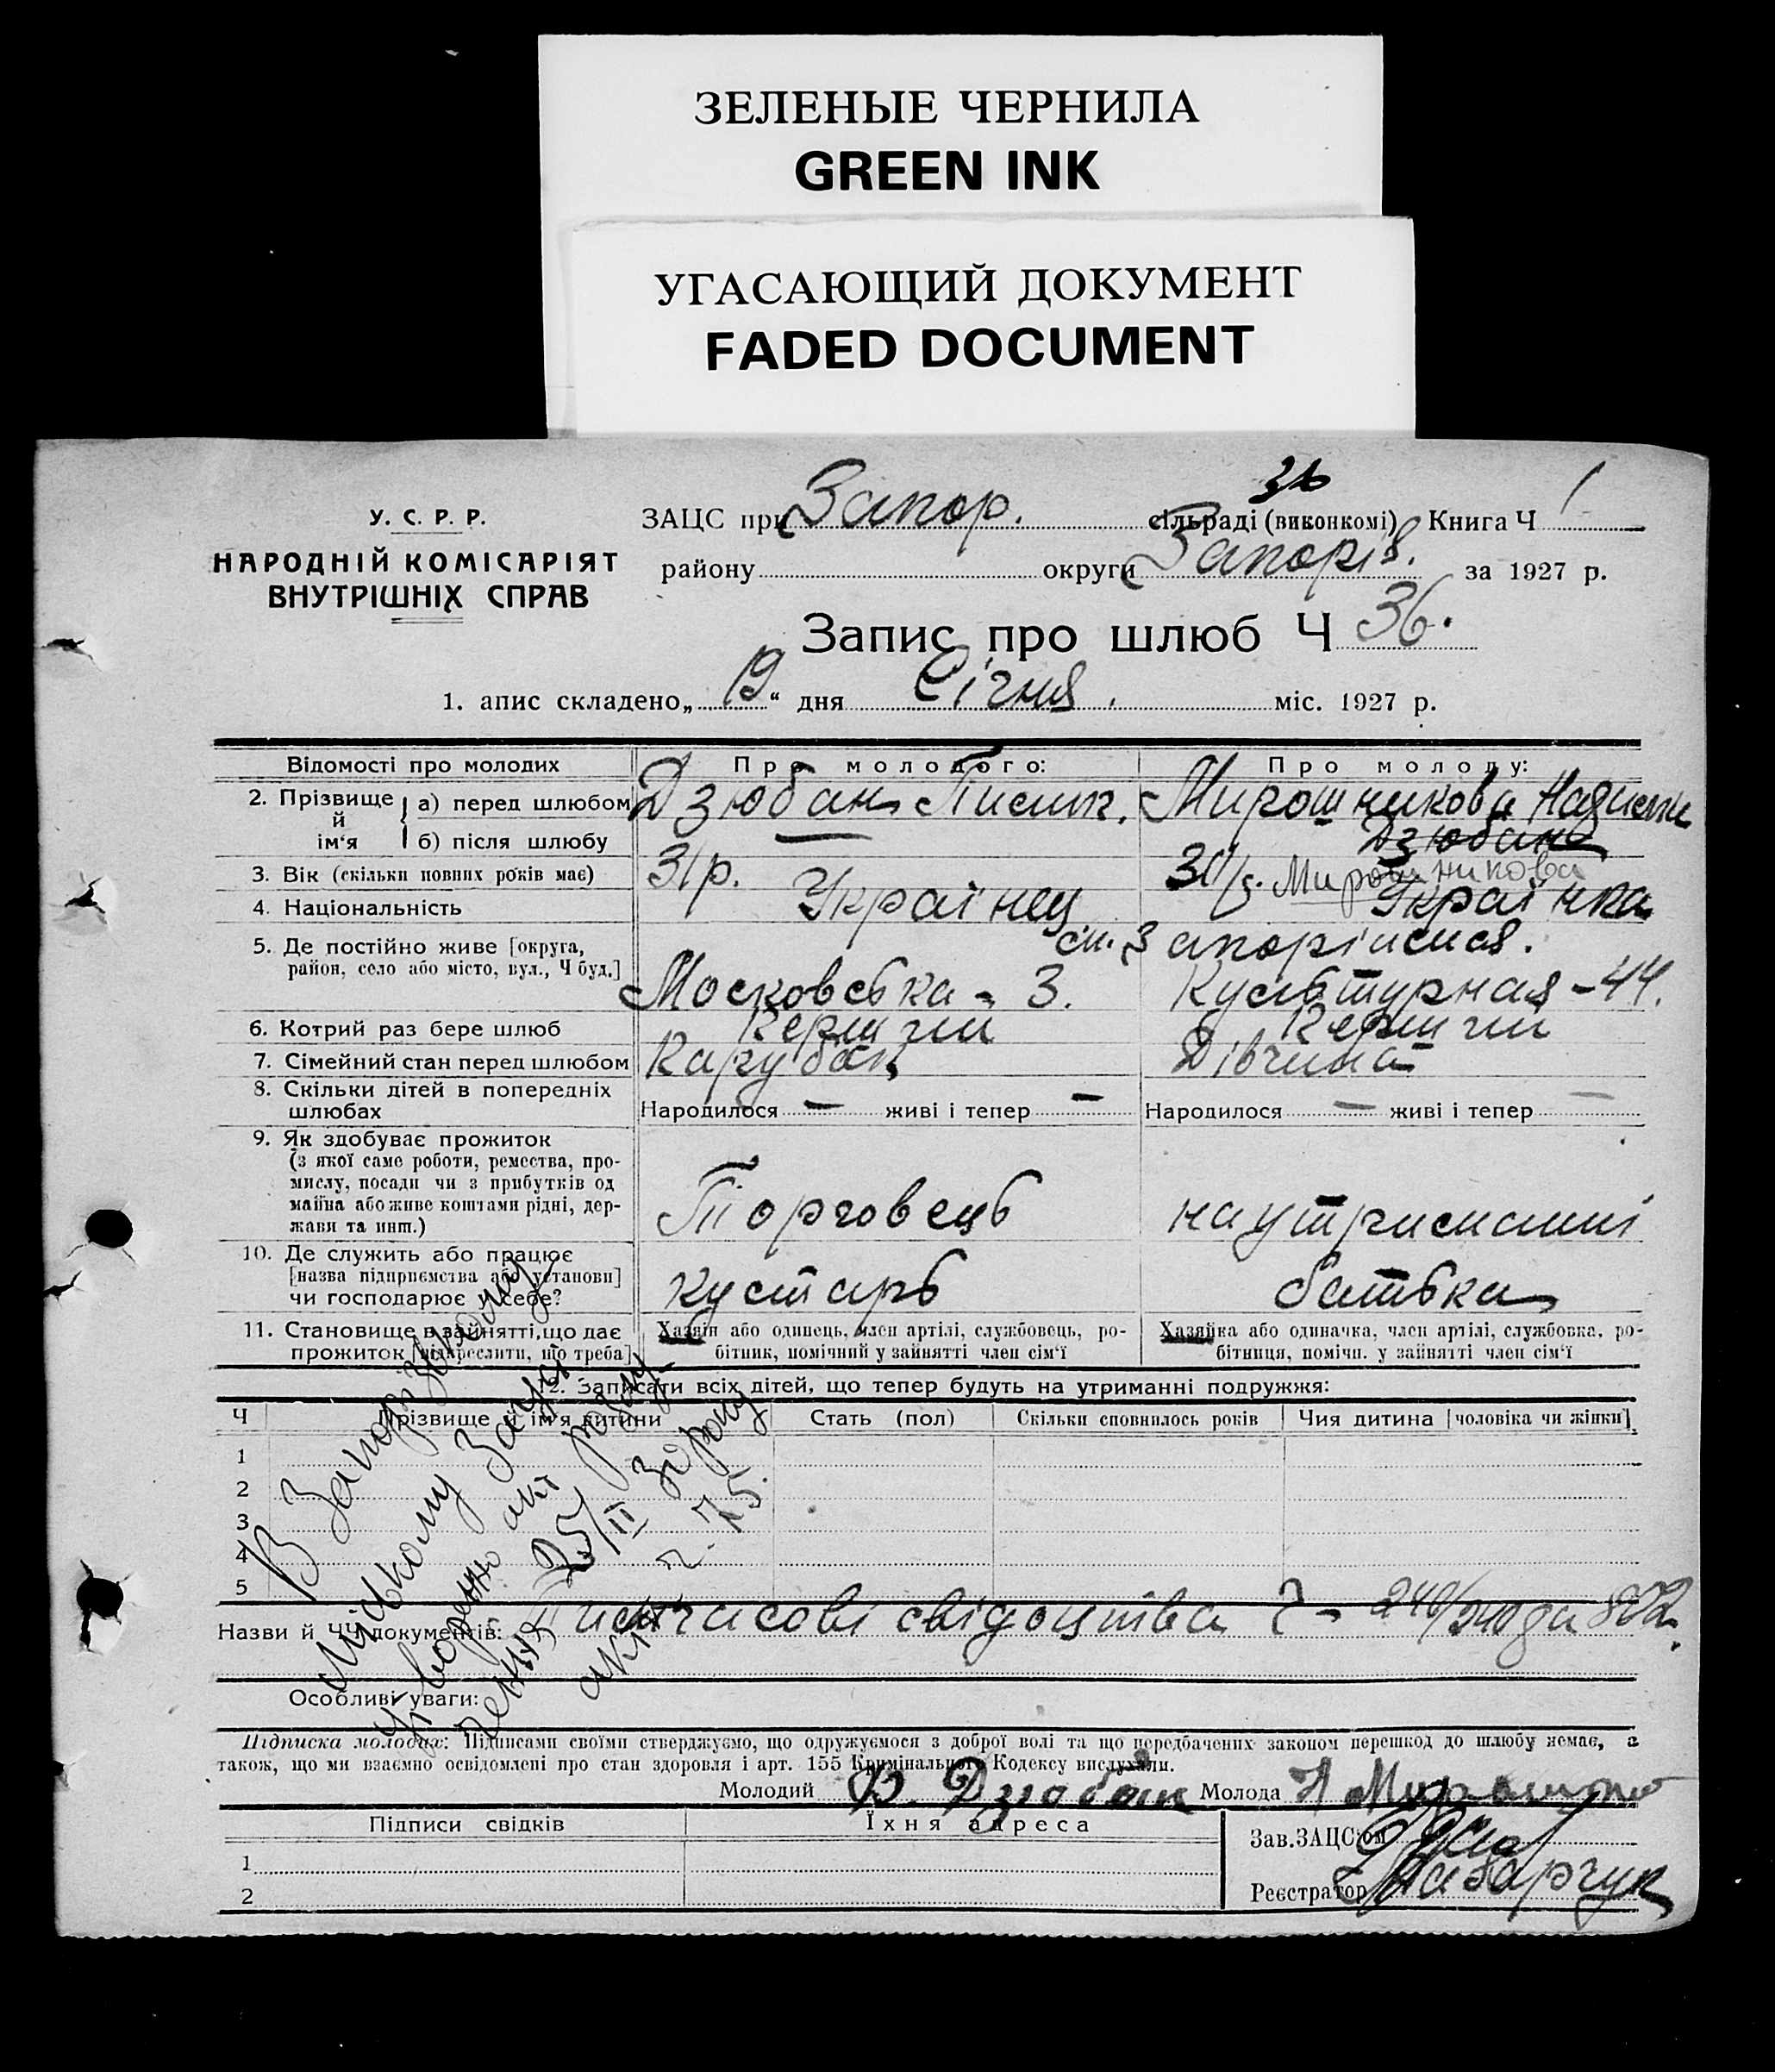 ЗЕЛЕНЫЕ ЧЕРНИЛА
GREEN INK
УГАСАЮЩИЙ ДОКУМЕНТ
FADED DOCUMENT
У. С. Р. Р.
НАРОДНІЙ КОМІСАРІЯТ
ВНУТРІШНІХ СПРАВ
ЗАЦС при Запор. сільраді (виконкомі) Книга Ч 1
району округи Запоріз. за 1927 р.
Запис про шлюб Ч 36.
1. апис складено „19“ дня Січня міс. 1927 р.
Відомості про молодих Про молодого: Про молоду:
2. Прізвище й ім‘я а) перед шлюбом Дзюбан Мирошникова
б) після шлюбу Дзюбан
3. Вік (скільки повних років має) 31 р. 30 Мирошникова
4. Національність Українец Українка
5. Де постійно живе [округа, м. Запоріжжя.
район, село або місто, вул., Ч буд.] Московська - 3. Культурная - 44.
6. Котрий раз бере шлюб Перший Перший
7. Сімейний стан перед шлюбом Парубок Дівчина
8. Скільки дітей в попередніх
шлюбах Народилося — живі і тепер — Народилося — живі і тепер —
9. Як здобуває прожиток
(з якої саме роботи, ремества, про-
мислу, посади чи з прибутків од
майна або живе коштами рідні, дер-
жави та инш.) Торговець на утриманні
10. Де служить або працює
[назва підприємства або установи]
чи господарює у себе? кустарь батька
11. Становище в зайнятті, що дає Хазяїн або одинець, член артілі, службовець, ро- Хазяйка або одиначка, член артілі, службовка, ро-
прожиток [підкреслити, що треба] бітник, помічний у зайнятті член сім‘ї бітниця, помічн. у зайнятті член сім‘ї
12. Записати всіх дітей, що тепер будуть на утриманні подружжя:
Ч Прізвище й ім‘я дитини Стать (пол) Скільки сповнилось років Чия дитина [чоловіка чи жінки]
1
2
3
4
5
В Запорізькому
міському Загсі
утворено акт розлу-
чення 25/II 3і року
акт ч. 75.
Назви й ЧЧ документів: свідоцтва Ч - 240/
Особливі уваги:
Підписка молодих: Підписами своїми стверджуємо, що одружуємося з доброї волі та що передбачених законом перешкод до шлюбу немає, а
також, що ми взаємно освідомлені про стан здоровля і арт. 155 Кримінального Кодексу вислухали.
Молодий В. Дзюбан Молода Н
Підписи свідків Їхня адреса
Зав.ЗАЦС‘ом
1
Реєстратор
2